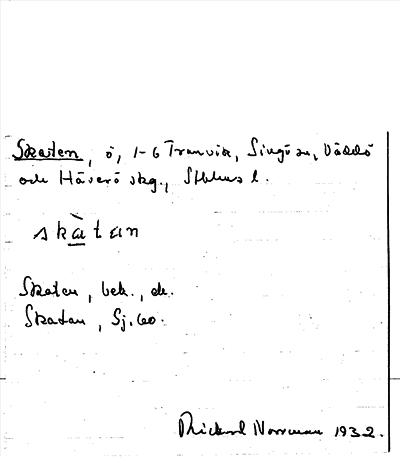 Skaten, ö, 1-6 Tranvik, Singö sn, Väddö
och Häverö skg., Sthlms l.
skàtan
Skaten, bek., ek.
Skatan, Sj.60.
Rickard Norrman 1932.